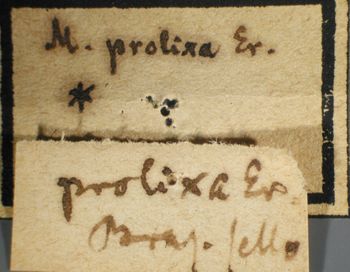 M. prolixa Er.
*
prolixa Er.
Bras. Sello